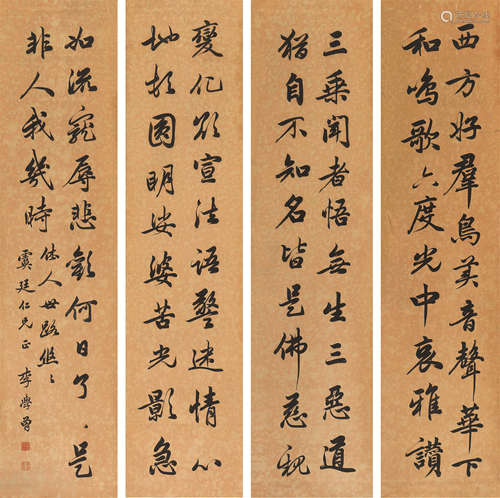 西方好羣鳥美音聲華下
和鳴歌六度光中哀雅讃
三乗聞者悟無生三惡道
猶自不知名皆是佛慈親
變化欲宣法語警迷情心
地本圓明娑婆苦光影急
如流寵辱悲歡何日了是
非人我幾時
休人世路悠〻
雲廷仁兄正 李學曾